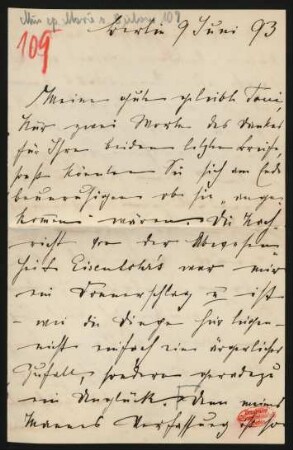 109
Berlin 9 Juni 93
Meine gute geliebte Toni,
Nur zwei Worte des Dankes
für Ihre beiden letzten Briefe,
sonst könnten Sie sich am Ende
beunruhigen ob sie "ange
kommen" wären. Die Nach
richt von der Abwesen-
heit Eisenlohr's war mir
ein Donnerschlag u ist
- wie die Dinge hier liegen -
nicht einfach ein ärgerlicher
Zufall, sondern geradezu
ein Unglück. Denn meines
Mannes Verfassung ist so